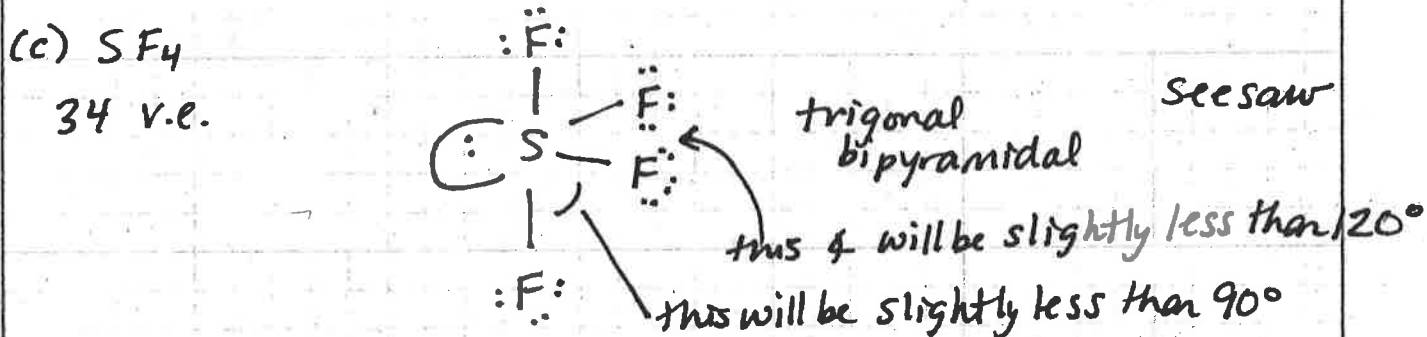 (c) SF4
34 v.e.
:F:
F:
S
F:
:F:
trigonal
bipyramidal
seesaw
this ∡ will be slightly less than 120°
this will be slightly less than 90°